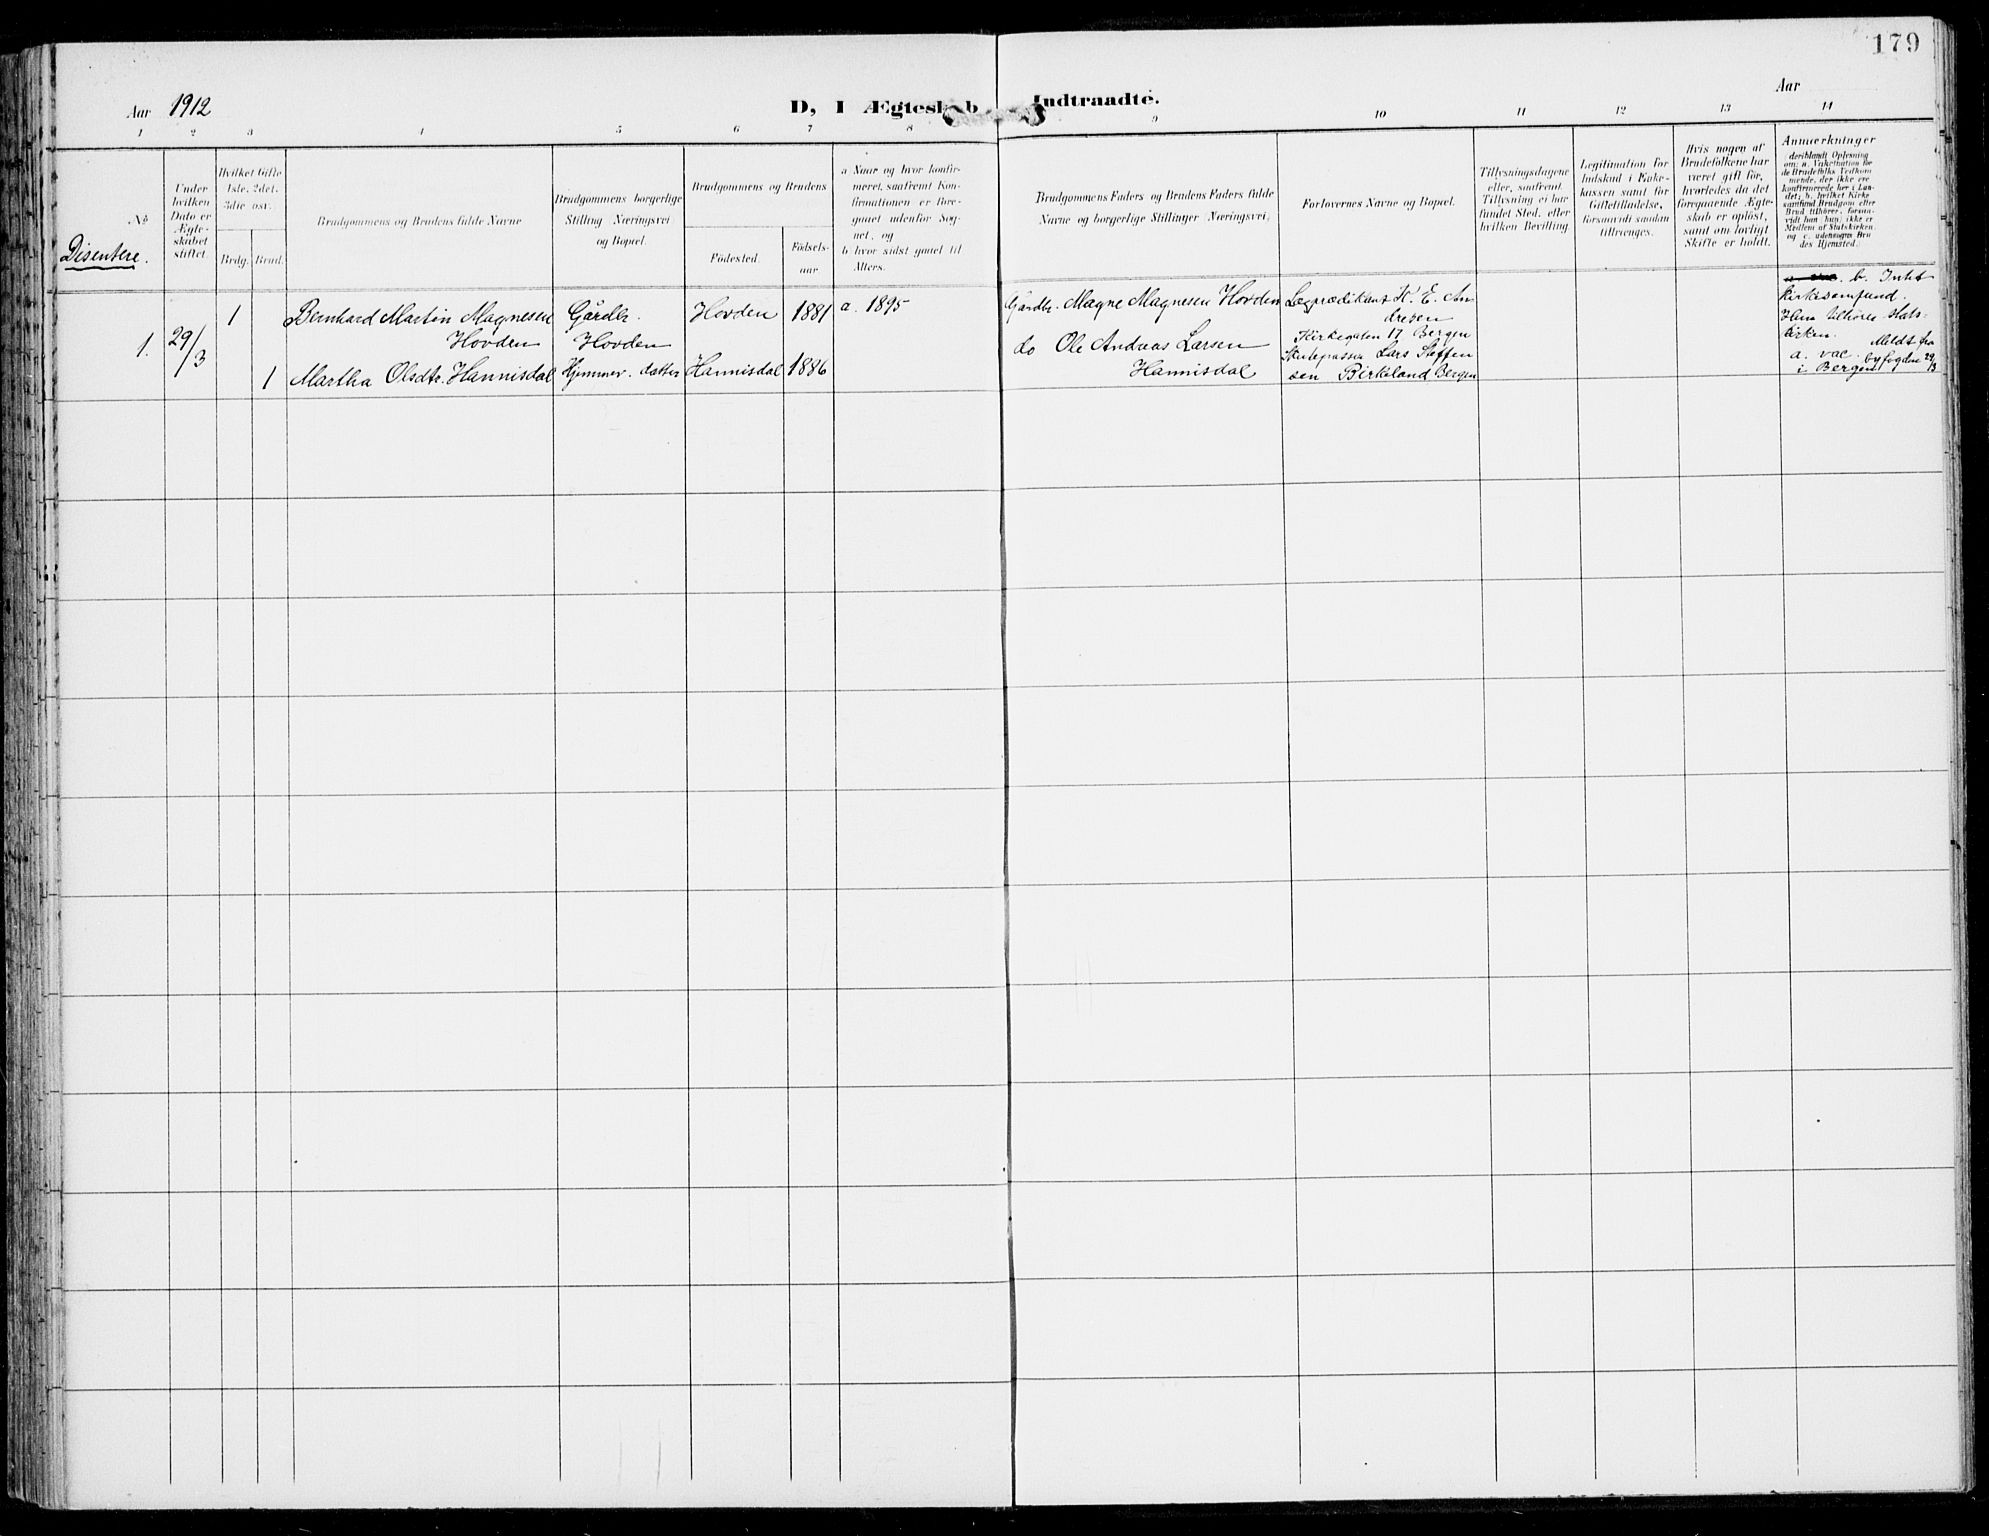 179
Aar 1912
D, I Ægteskab Indtraadte.
Aar
1 2 3 4 5 6 7 8 9 10 11 12 13 14
Disentere.
No
Under hvilken Dato er Ægteskabet stiftet.
Hvilket Gifte 1ste, 2det, 3die osv.
Brdg. Brud.
Brudgommens og Brudens fulde Navne
Brudgommens borgerlige Stilling (Næringsvei) og Bopæl.
Brudgommens og Brudens
Fødested.
Fødselsaar.
a Naar og hvor konfirmeret, saafremt Konfirmationen er foregaaet udenfor Sognet, og
b hvor sidst gaaet til Alters.
Brudgommens Faders og Brudens Faders fulde
Navne og borgerlige Stillinger (Næringsvei)
Forlovernes Navne og Bopæl.
Tillysningsdagene eller, saafremt Tillysning ei har fundet Sted, efter hvilken Bevilling.
Legitimation for Indskud i Enkekassen samt for Giftetilladelse, forsaavidt saadan tiltrænges.
Hvis nogen af Brudefolkene har været gift før, hvorledes da det foregaaende Ægteskab er opløst, samt om lovligt Skifte er holdt.
Anmærkninger
deriblandt Oplysning om: a. Vakcination for de Brudefolks Vedkommende, der ikke ere konfirmerede her i Landet; b. hvilket Kirkesamfund Brudgom eller Brud tilhører, forsaavidt han (hun) ikke er Medlem af Statskirken, og c. udensogns Brudes Hjemsted.
1. 29/3
1 Bernhard Martin Magnesen
Hovden
Gårdbr.
Hovden
Hovden 1881 a. 1895
Gårdbr. Magne Magnesen Hovden
Lægprædikant K. E. Andresen
Kirkegaten 17 Bergen
1 Martha Olsdtr. Hannisdal
Hjemmev. datter Hannisdal 1886
do Ole Andreas Larsen
Hannisdal
Lars Steffensen Birkeland Bergen
b. Intet
kirkesamfund.
Hun tilhører Statskirken.
a. vac.
i Bergen
Meldt fra
byfogden 29/3